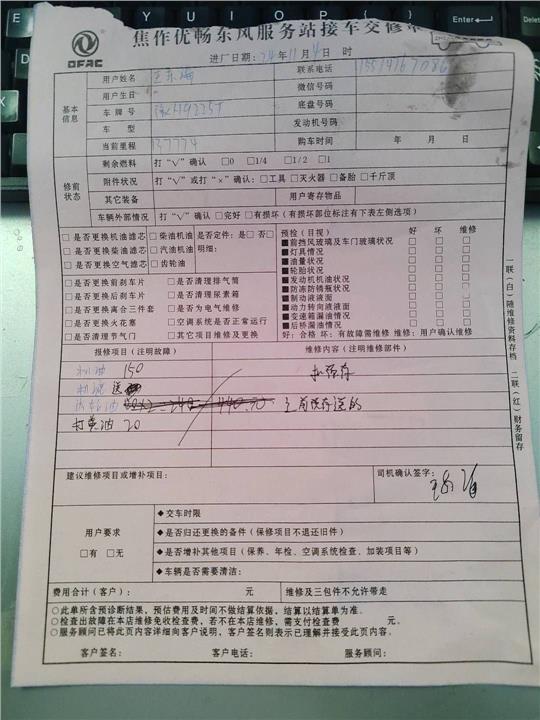 焦作优畅东风服务站接车交修单
DFAC
进厂日期:24年11月4日 时
基本信息
用户姓名
联系电话
用户生日
微信号码
车牌号
底盘号码
车型
发动机号码
当前里程 137774
购车时间 年 月 日
修前状态
剩余燃料 打“√”确认 □0 □1/4 □1/2 □1
附件状况 打“√”或打“×”确认:□工具 □灭火器 □备胎 □千斤顶
其它装备
用户寄存物品
车辆外部情况 打“√”确认 □完好 □有损坏(有损坏部位标注有下表左侧选项)
□是否更换机油滤芯 □柴油机油 是否定件:是□ 否□
□是否更换柴油滤芯 □汽油机油 明细:
□是否更换空气滤芯 □齿轮油
□是否更换前刹车片 □是否清理排气筒
□是否更换后刹车片 □是否清理尿素箱
□是否更换离合三件套 □是否为电气维修
□是否更换火花塞 □空调系统是否正常运行
□是否清理节气门 □其它项目维修及更换
预检(目视) 好 坏 维修
■前挡风玻璃及车门玻璃状况 □ □ □
■灯具情况 □ □ □
■油量状况 □ □ □
■轮胎状况 □ □ □
■发动机机油状况 □ □ □
■防冻防锈瓶状况 □ □ □
■制动液液面 □ □ □
■动力转向液液面 □ □ □
■变速箱漏油情况 □ □ □
■后桥漏油情况 □ □ □
好:合格 坏:有故障需维修 维修:用户确认维修
报修项目(注明故障)
维修内容(注明维修部件)
机油 150
机滤 送
打黄油 20
建议维修项目或增补项目:
司机确认签字:
用户要求
□有 □无
◆交车时限
◆是否归还更换的备件(保修项目不退还旧件)
◆是否增补其他项目(保养、年检、空调系统检查、加装项目等)
◆车辆是否需要清洁:
费用合计(客户): 元
维修及三包件不允许带走
○此单所含预诊断结果,预估费用及时间不做结算依据,结算以结算单为准。
○检查出故障在本店维修免收检查费,若不在本店维修,需支付检查费 元。
○服务顾问已将此页内容详细向客户说明,客户签名则表示已理解并接受此页内容。
客户签名: 客户电话: 服务顾问:
一联(白)随维修资料存档 二联(红)财务留存